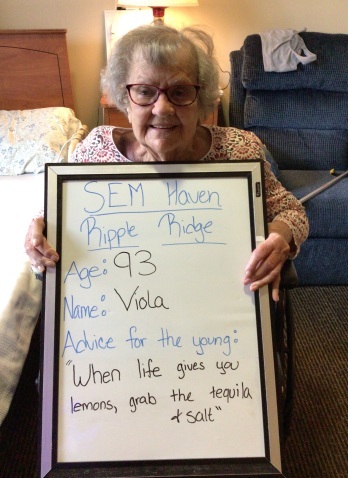 SEM Haven
Ripple Ridge
Age: 93
Name: Viola
Advice for the young:
"When life gives you
lemons, grab the tequila
& salt"